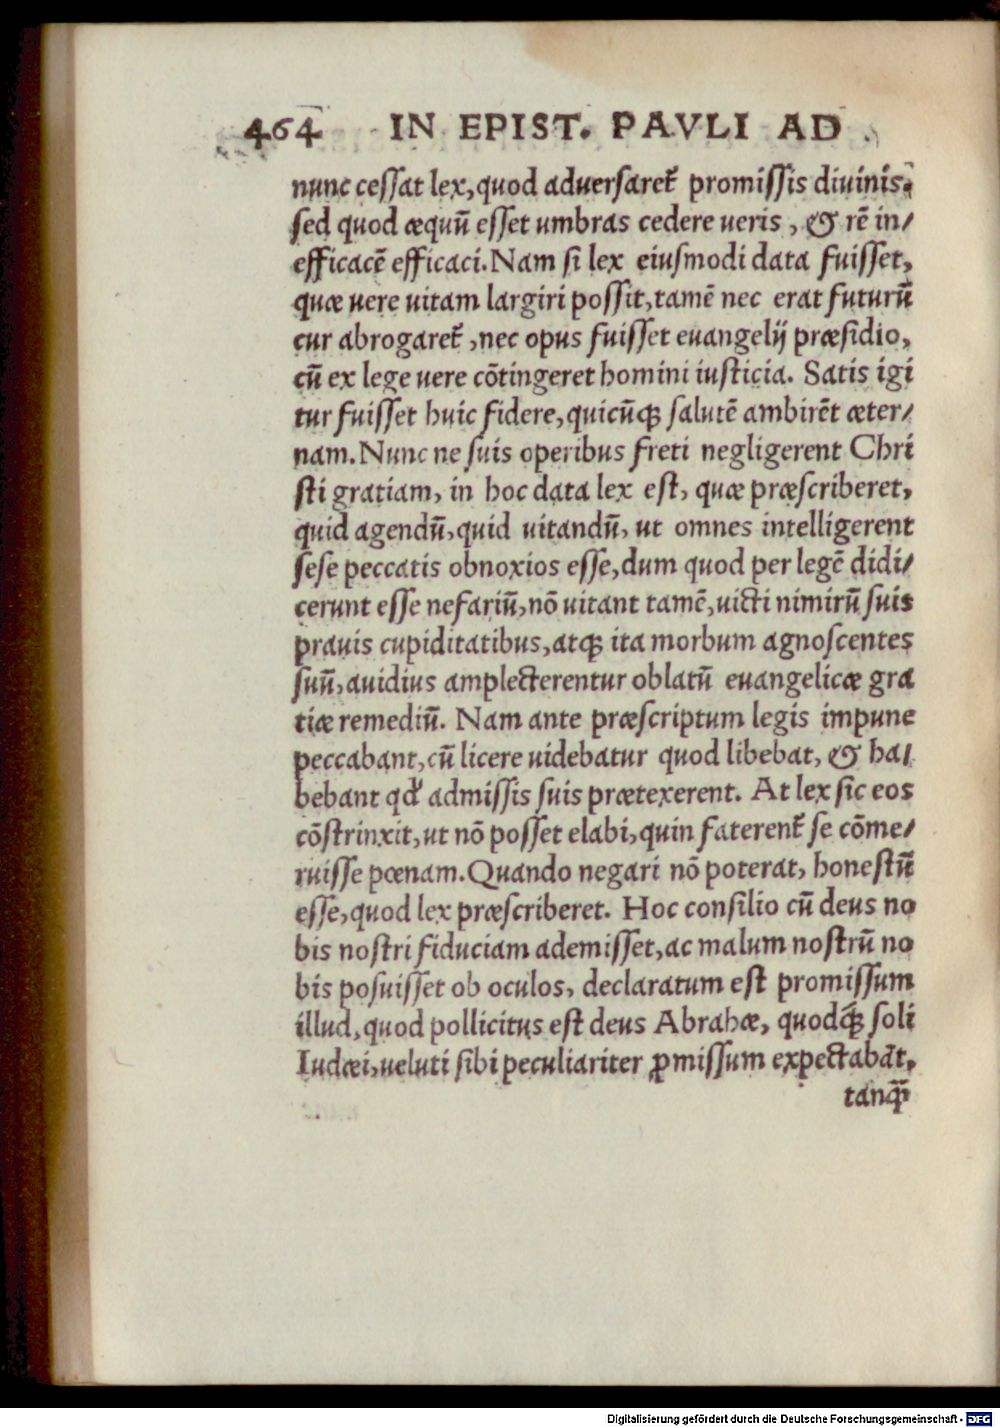 464 IN EPIST. PAVLI AD
nunc cessat lex, quod aduersaret᷑ promissis diuinis,
sed quod æquū esset umbras cedere ueris, & rē in/
efficacē efficaci. Nam si lex eiusmodi data fuisset,
quæ uere uitam largiri possit, tamē nec erat futurū
cur abrogaret᷑, nec opus fuisset euangelij præsidio,
cū ex lege uere cōtingeret homini iusticia. Satis igi
tur fuisset huic fidere, quicūqꝫ salutē ambirēt æter/
nam. Nunc ne suis operibus freti negligerent Chri
sti gratiam, in hoc data lex est, quæ præscriberet,
quid agendū, quid uitandū, ut omnes intelligerent
sese peccatis obnoxios esse, dum quod per legē didi/
cerunt esse nefariū, nō uitant tamē, uicti nimirū suis
prauis cupiditatibus, atqꝫ ita morbum agnoscentes
suū, auidius amplecterentur oblatū euangelicæ gra
tiæ remediū. Nam ante præscriptum legis impune
peccabant, cū licere uidebatur quod libebat, & ha/
bebant qd᷑ admissis suis prætexerent. At lex sic eos
cōstrinxit, ut nō posset elabi, quin faterent᷑ se cōme/
ruisse pœnam. Quando negari nō poterat, honestū
esse, quod lex præscriberet. Hoc consilio cū deus no
bis nostri fiduciam ademisset, ac malum nostrū no
bis posuisset ob oculos, declaratum est promissum
illud, quod pollicitus est deus Abrahæ, quodqꝫ́ soli
Iudæi, ueluti sibi peculiariter ꝓmissum expectabāt,
tanꝙ̄
Digitalisierung gefördert durch die Deutsche Forschungsgemeinschaft - DFG